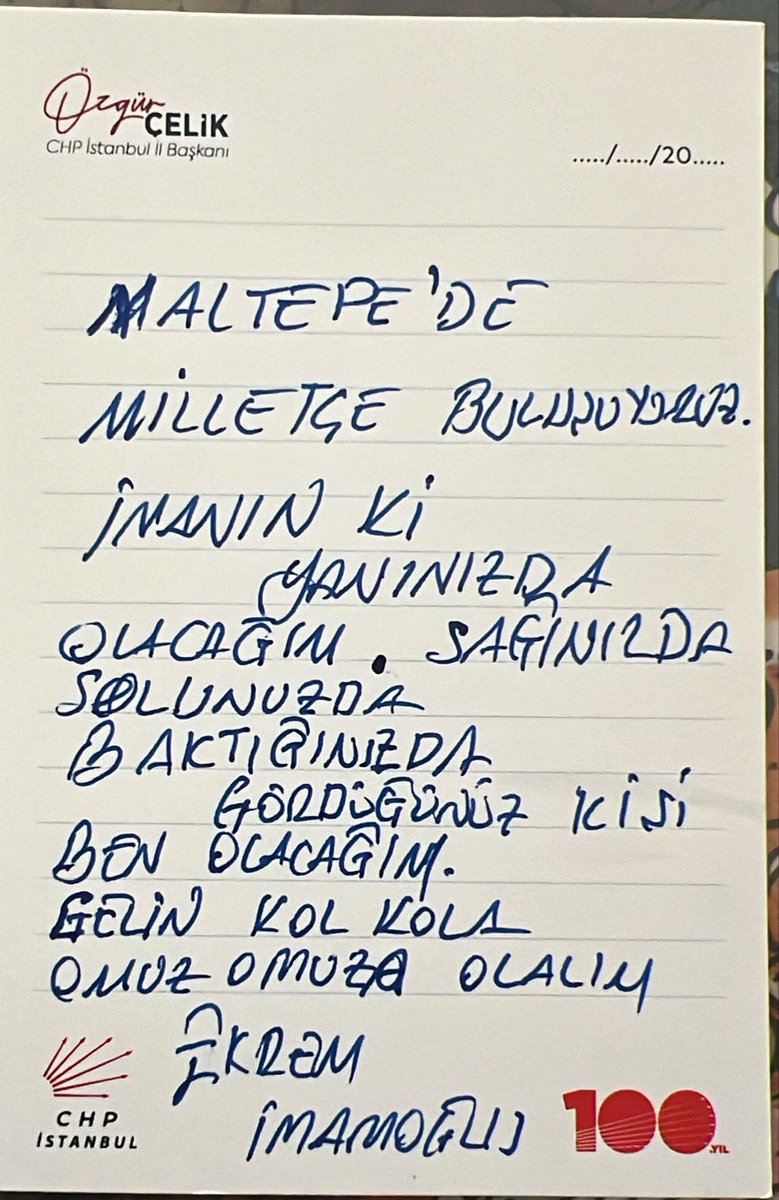 Özgür
ÇELİK
CHP İstanbul İl Başkanı
...../...../20.....
MALTEPE'DE
MİLLETÇE BULUŞUYORUZ.
İNANIN Kİ
YANINIZDA
OLACAĞIM. SAĞINIZDA
SOLUNUZDA
BAKTIĞINIZDA
GÖRDÜĞÜNÜZ KİŞİ
BEN OLACAĞIM.
GELİN KOL KOLA
OMUZ OMUZA OLALIM
EKREM
İMAMOĞLU
CHP
İSTANBUL
100
.YIL